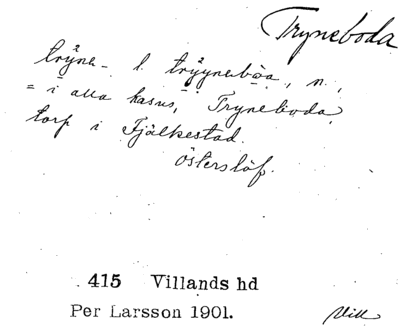 Tryneboda
trÿne- l. trÿyneböa, n.,
= i alla kasus, Tryneboda,
torp i Fjälkestad.
Österslöf.
415 Villands hd
Per Larsson 1901.
Vill